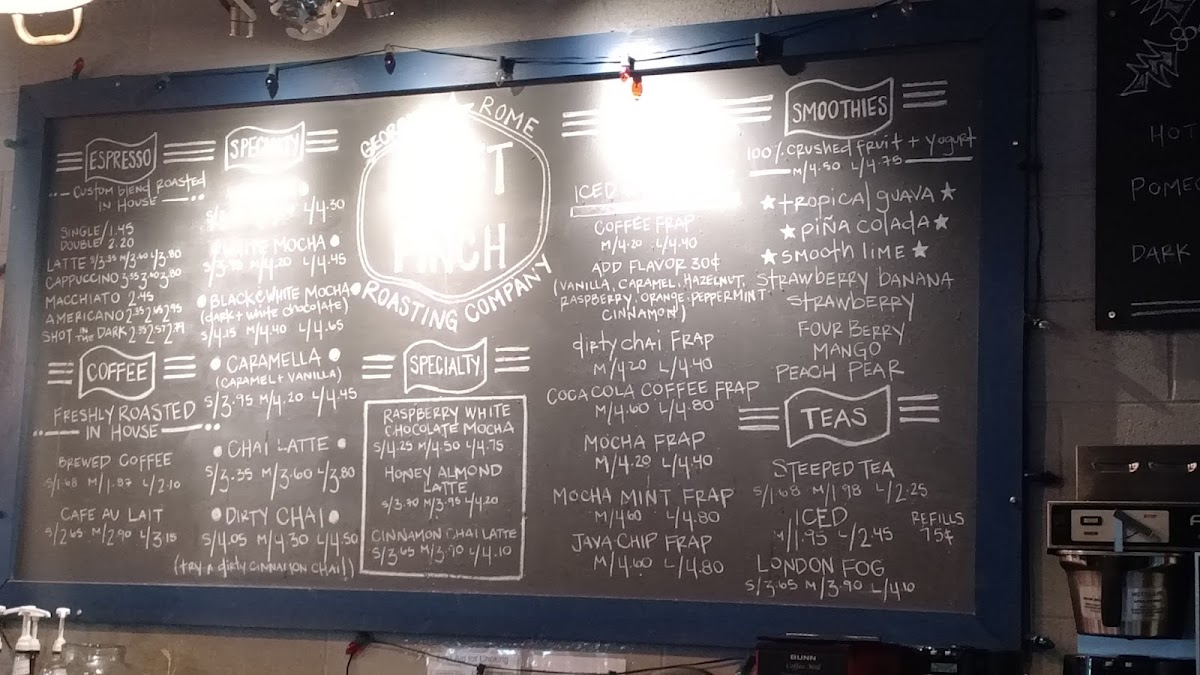 ESPRESSO
CUSTOM BLEND ROASTED
IN HOUSE
SINGLE/1.45
DOUBLE/2.20
LATTE S/3.35 M/3.60 L/3.80
CAPPUCCINO 3.35 3.60 3.80
MACCHIATO 2.45
AMERICANO 2.35 2.45 2.95
SHOT IN THE DARK 2.35 2.57 2.79
COFFEE
FRESHLY ROASTED
IN HOUSE
BREWED COFFEE
S/1.68 M/1.87 L/2.10
CAFE AU LAIT
S/2.65 M/2.90 L/3.15
SPECIALTY
L/4.30
WHITE MOCHA
M/4.20 L/4.45
BLACK & WHITE MOCHA
(dark + white chocolate)
S/4.15 M/4.40 L/4.65
CARAMELLA
(CARAMEL + VANILLA)
S/3.95 M/4.20 L/4.45
CHAI LATTE
S/3.35 M/3.60 L/3.80
DIRTY CHAI
S/4.05 M/4.30 L/4.50
(try a dirty cinnamon chai!)
ROME
ROASTING COMPANY
SPECIALTY
RASPBERRY WHITE
CHOCOLATE MOCHA
S/4.25 M/4.50 L/4.75
HONEY ALMOND
LATTE
S/3.70 M/3.95 L/4.20
CINNAMON CHAI LATTE
S/3.65 M/3.90 L/4.10
ICED
COFFEE FRAP
M/4.20 L/4.40
ADD FLAVOR 30¢
(VANILLA, CARAMEL, HAZELNUT,
RASPBERRY, ORANGE, PEPPERMINT,
CINNAMON)
dirty chai FRAP
M/4.20 L/4.40
COCA COLA COFFEE FRAP
M/4.60 L/4.80
MOCHA FRAP
M/4.20 L/4.40
MOCHA MINT FRAP
M/4.60 L/4.80
JAVA CHIP FRAP
M/4.60 L/4.80
SMOOTHIES
100% crushed fruit + yogurt
M/4.50 L/4.75
tropical guava
piña colada
smooth lime
strawberry banana
strawberry
FOUR BERRY
MANGO
PEACH PEAR
TEAS
STEEPED TEA
S/1.68 M/1.98 L/2.25
ICED
M/1.95 L/2.45
REFILLS
75¢
LONDON FOG
S/3.65 M/3.90 L/4.10
HOT
POME
DARK
BUNN